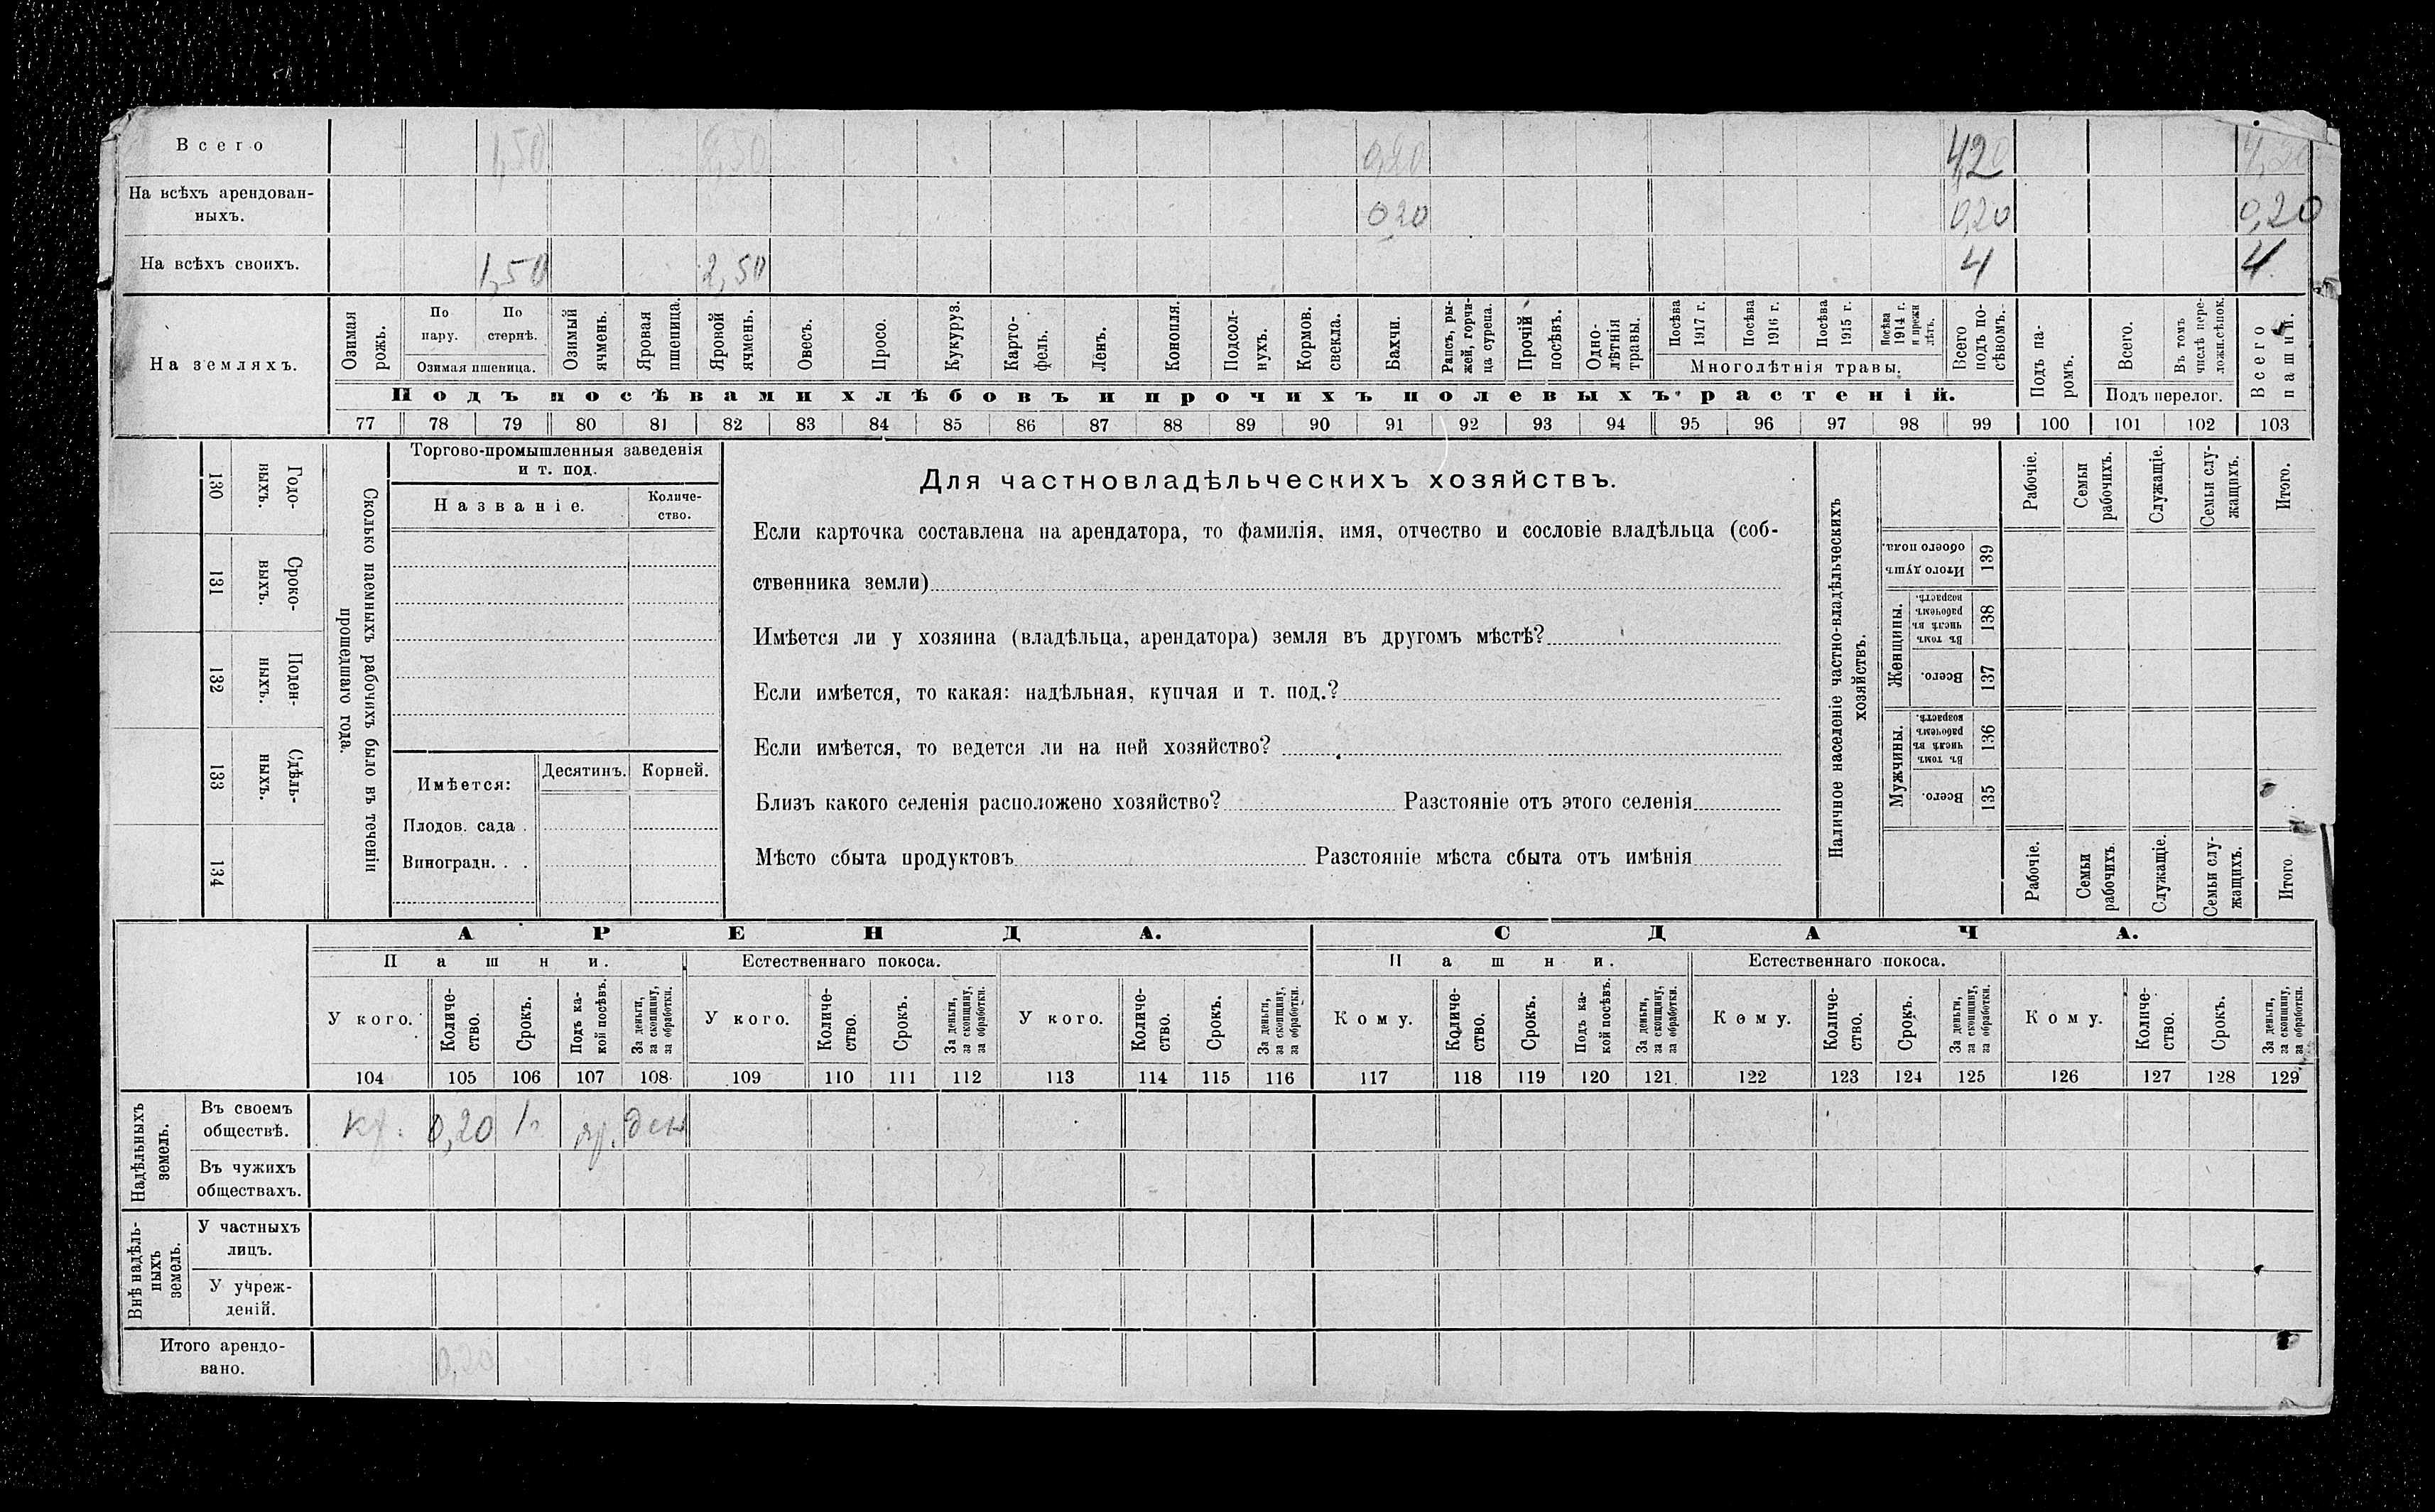 Всего 1,50 2,50 0,20 4,20 4,20
На всѣхъ арендован-
ныхъ. 0,20 0,20 0,20
На всѣхъ своихъ. 1,50 2,50 4 4
На земляхъ.
Озимая
рожь.
По
пару.
По
стернѣ.
Озимая пшеница.
Озимый
ячмень.
Яровая
пшеница.
Яровой
ячмень.
Овесъ.
Просо.
Кукуруз.
Карто-
фель.
Ленъ.
Конопля.
Подсол-
нухъ.
Кормов.
свекла.
Бахчи.
Рапсъ, ры-
жей, горчи-
ца сурепа.
Прочій
посѣвъ.
Одно-
лѣтнія
травы.
Посѣва
1917 г.
Посѣва
1916 г.
Посѣва
1915 г.
Посѣва
1914 г.
и прежн
лѣтъ.
Многолѣтнія травы.
Всего
подъ по-
сѣвомъ.
Подъ посѣвами хлѣбовъ и прочихъ полевыхъ растеній.
Подъ па-
ромъ.
Всего.
Въ томъ
числѣ пере-
ложн.сѣнок.
Подъ перелог.
Всего
пашни.
77 78 79 80 81 82 83 84 85 86 87 88 89 90 91 92 93 94 95 96 97 98 99 100 101 102 103
130 Годо-
выхъ.
131 Сроко-
выхъ.
132 Поден-
ныхъ.
133 Сдѣль-
ныхъ.
134
Сколько наемныхъ рабочихъ было въ теченіи
прошедшаго года.
Торгово-промышленныя заведенія
и т. под.
Названіе.
Количе-
ство.
Имѣется:
Десятинъ. Корней.
Плодов. сада .
Виноградн. . .
Для частновладѣльческихъ хозяйствъ.
Если карточка составлена на арендатора, то фамилія, имя, отчество и сословіе владѣльца (соб-
ственника земли)
Имѣется ли у хозяина (владѣльца, арендатора) земля въ другомъ мѣстѣ?
Если имѣется, то какая: надѣльная, купчая и т. под.?
Если имѣется, то ведется ли на ней хозяйство?
Близъ какого селенія расположено хозяйство? Разстояніе отъ этого селенія
Мѣсто сбыта продуктовъ Разстояніе мѣста сбыта отъ имѣнія
Наличное населеніе частно-владѣльческихъ
хозяйствъ.
Рабочіе.
Семьи
рабочихъ.
Служащіе.
Семьи слу-
жащихъ.
Итого.
Итого душъ
обоего пола.
139
Женщины.
Въ томъ
числѣ въ
рабочемъ
возрастѣ.
138
Всего.
137
Мужчины.
Въ томъ
числѣ въ
рабочемъ
возрастѣ.
136
Всего.
135
Рабочіе.
Семьи
рабочихъ.
Служащіе.
Семьи слу-
жащихъ.
Итого.
АРЕНДА. СДАЧА.
Пашни. Естественнаго покоса. Пашни. Естественнаго покоса.
У кого.
Количе-
ство.
Срокъ.
Подъ ка-
кой посѣвъ.
За деньги,
за скопщину,
за обработки.
У кого.
Количе-
ство.
Срокъ.
За деньги,
за скопщину,
за обработки.
У кого.
Количе-
ство.
Срокъ.
За деньги,
за скопщину,
за обработки.
Кому.
Количе-
ство.
Срокъ.
Подъ ка-
кой посѣвъ.
За деньги,
за скопщину,
за обработки.
Кому.
Количе-
ство.
Срокъ.
За деньги,
за скопщину,
за обработки.
Кому.
Количе-
ство.
Срокъ.
За деньги,
за скопщину,
за обработки.
104 105 106 107 108 109 110 111 112 113 114 115 116 117 118 119 120 121 122 123 124 125 126 127 128 129
Надѣльныхъ
земель.
Въ своемъ
обществѣ. кр. 0,20 1г яр. ден
Въ чужихъ
обществахъ.
Внѣ надѣль-
ныхъ
земель.
У частныхъ
лицъ.
У учреж-
деній.
Итого арендо-
вано. 0,20